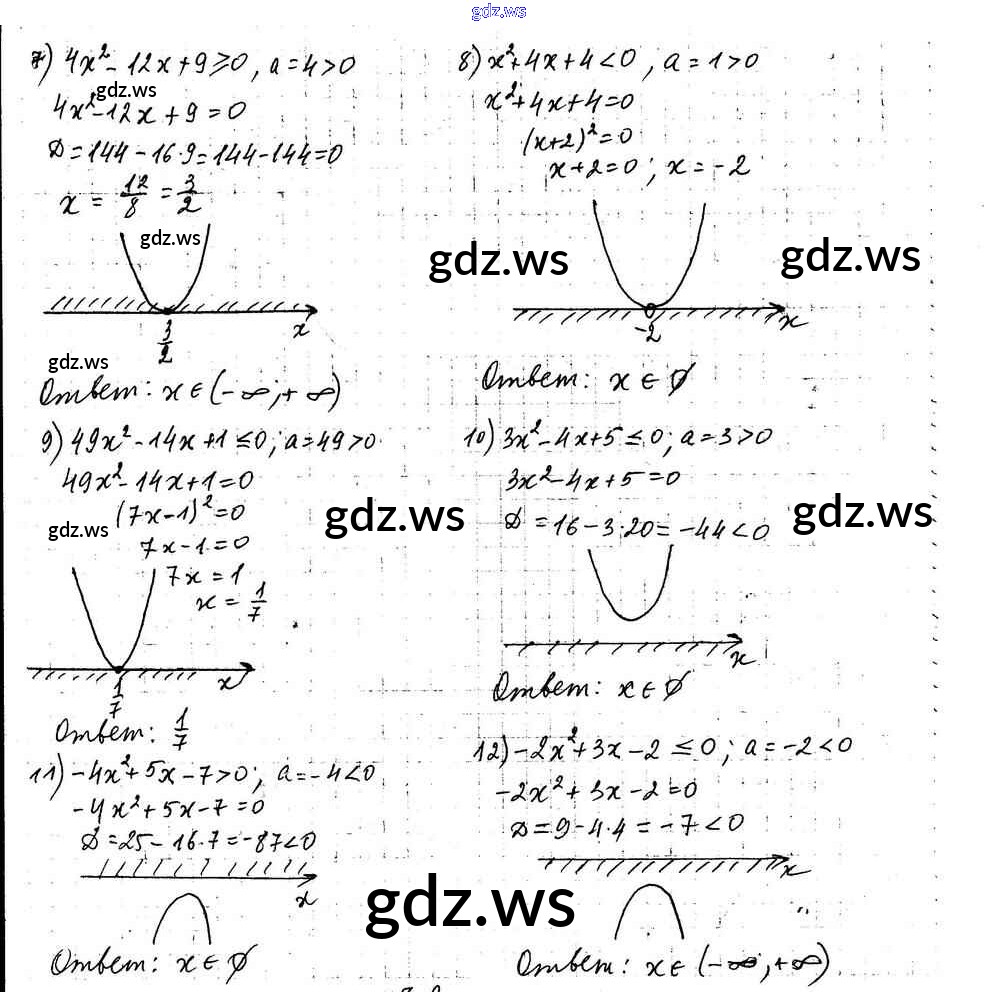 gdz.ws
7) 4x² - 12x + 9 ≥ 0, a = 4 > 0
gdz.ws
4x² - 12x + 9 = 0
D = 144 - 16·9 = 144 - 144 = 0
x = 12/8 = 3/2
gdz.ws
x
3/2
gdz.ws
Ответ: x ∈ (-∞; +∞)
8) x² + 4x + 4 < 0, a = 1 > 0
x² + 4x + 4 = 0
(x+2)² = 0
x + 2 = 0; x = -2
gdz.ws
gdz.ws
-2
x
Ответ: x ∈ ∅
9) 49x² - 14x + 1 ≤ 0; a = 49 > 0
49x² - 14x + 1 = 0
(7x - 1)² = 0
gdz.ws
gdz.ws
7x - 1 = 0
7x = 1
x = 1/7
x
1/7
Ответ: 1/7
10) 3x² - 4x + 5 ≤ 0; a = 3 > 0
3x² - 4x + 5 = 0
gdz.ws
D = 16 - 3·20 = -44 < 0
x
Ответ: x ∈ ∅
11) -4x² + 5x - 7 > 0; a = -4 < 0
-4x² + 5x - 7 = 0
D = 25 - 16·7 = -87 < 0
x
gdz.ws
Ответ: x ∈ ∅
12) -2x² + 3x - 2 ≤ 0; a = -2 < 0
-2x² + 3x - 2 = 0
D = 9 - 4·4 = -7 < 0
x
Ответ: x ∈ (-∞; +∞)